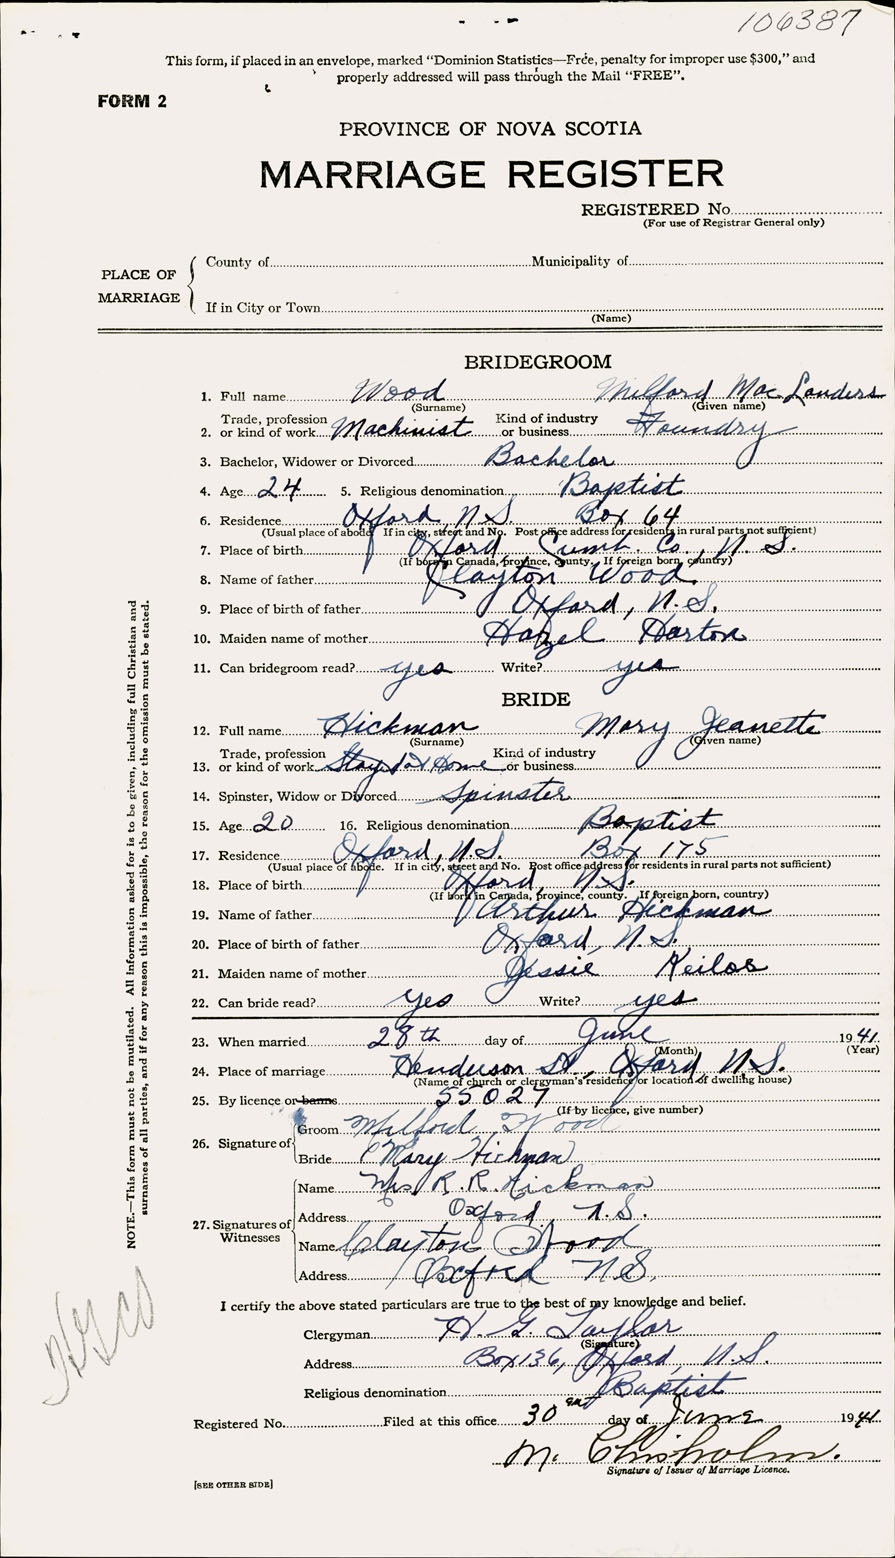 106387
This form, if placed in an envelope, marked "Dominion Statistics—Free, penalty for improper use $300," and
properly addressed will pass through the Mail "FREE".
FORM 2
PROVINCE OF NOVA SCOTIA
MARRIAGE REGISTER
REGISTERED No.
(For use of Registrar General only)
PLACE OF MARRIAGE
County of Municipality of
If in City or Town
(Name)
BRIDEGROOM
1. Full name Wood Milford Mac Landers
(Surname) (Given name)
2. Trade, profession or kind of work Machinist Kind of industry or business Foundry
3. Bachelor, Widower or Divorced Bachelor
4. Age 24 5. Religious denomination Baptist
6. Residence Oxford, N.S. Box 64
(Usual place of abode. If in city, street and No. Post office address for residents in rural parts not sufficient)
7. Place of birth Oxford, Cumb. Co., N. S.
(If born in Canada, province, county. If foreign born, country)
8. Name of father Clayton Wood
9. Place of birth of father Oxford, N.S.
10. Maiden name of mother Hazel Harton
11. Can bridegroom read? yes Write? yes
BRIDE
12. Full name Hickman Mary Jeanette
(Surname) (Given name)
13. Trade, profession or kind of work Stayed at Home Kind of industry or business
14. Spinster, Widow or Divorced Spinster
15. Age 20 16. Religious denomination Baptist
17. Residence Oxford, N.S. Box 175
(Usual place of abode. If in city, street and No. Post office address for residents in rural parts not sufficient)
18. Place of birth Oxford, N.S.
(If born in Canada, province, county. If foreign born, country)
19. Name of father Arthur Hickman
20. Place of birth of father Oxford, N.S.
21. Maiden name of mother Jessie Keilor
22. Can bride read? yes Write? yes
23. When married 28th day of June 1941
(Month) (Year)
24. Place of marriage Henderson St, Oxford N.S.
(Name of church or clergyman's residence or location of dwelling house)
25. By licence or banns 55027
(If by licence, give number)
26. Signature of
Groom Milford Wood
Bride Mary Hickman
27. Signatures of Witnesses
Name Mrs R. R. Hickman
Address Oxford, N.S.
Name Clayton Wood
Address Oxford N.S.
I certify the above stated particulars are true to the best of my knowledge and belief.
Clergyman H. G. Taylor
(Signature)
Address Box 136, Oxford, N.S.
Religious denomination Baptist
Registered No. Filed at this office 30 day of June 1941
M. Chisholm.
Signature of Issuer of Marriage Licence.
[SEE OTHER SIDE]
NOTE.—This form must not be mutilated. All information asked for is to be given, including full Christian and
surnames of all parties, and if for any reason this is impossible, the reason for the omission must be stated.